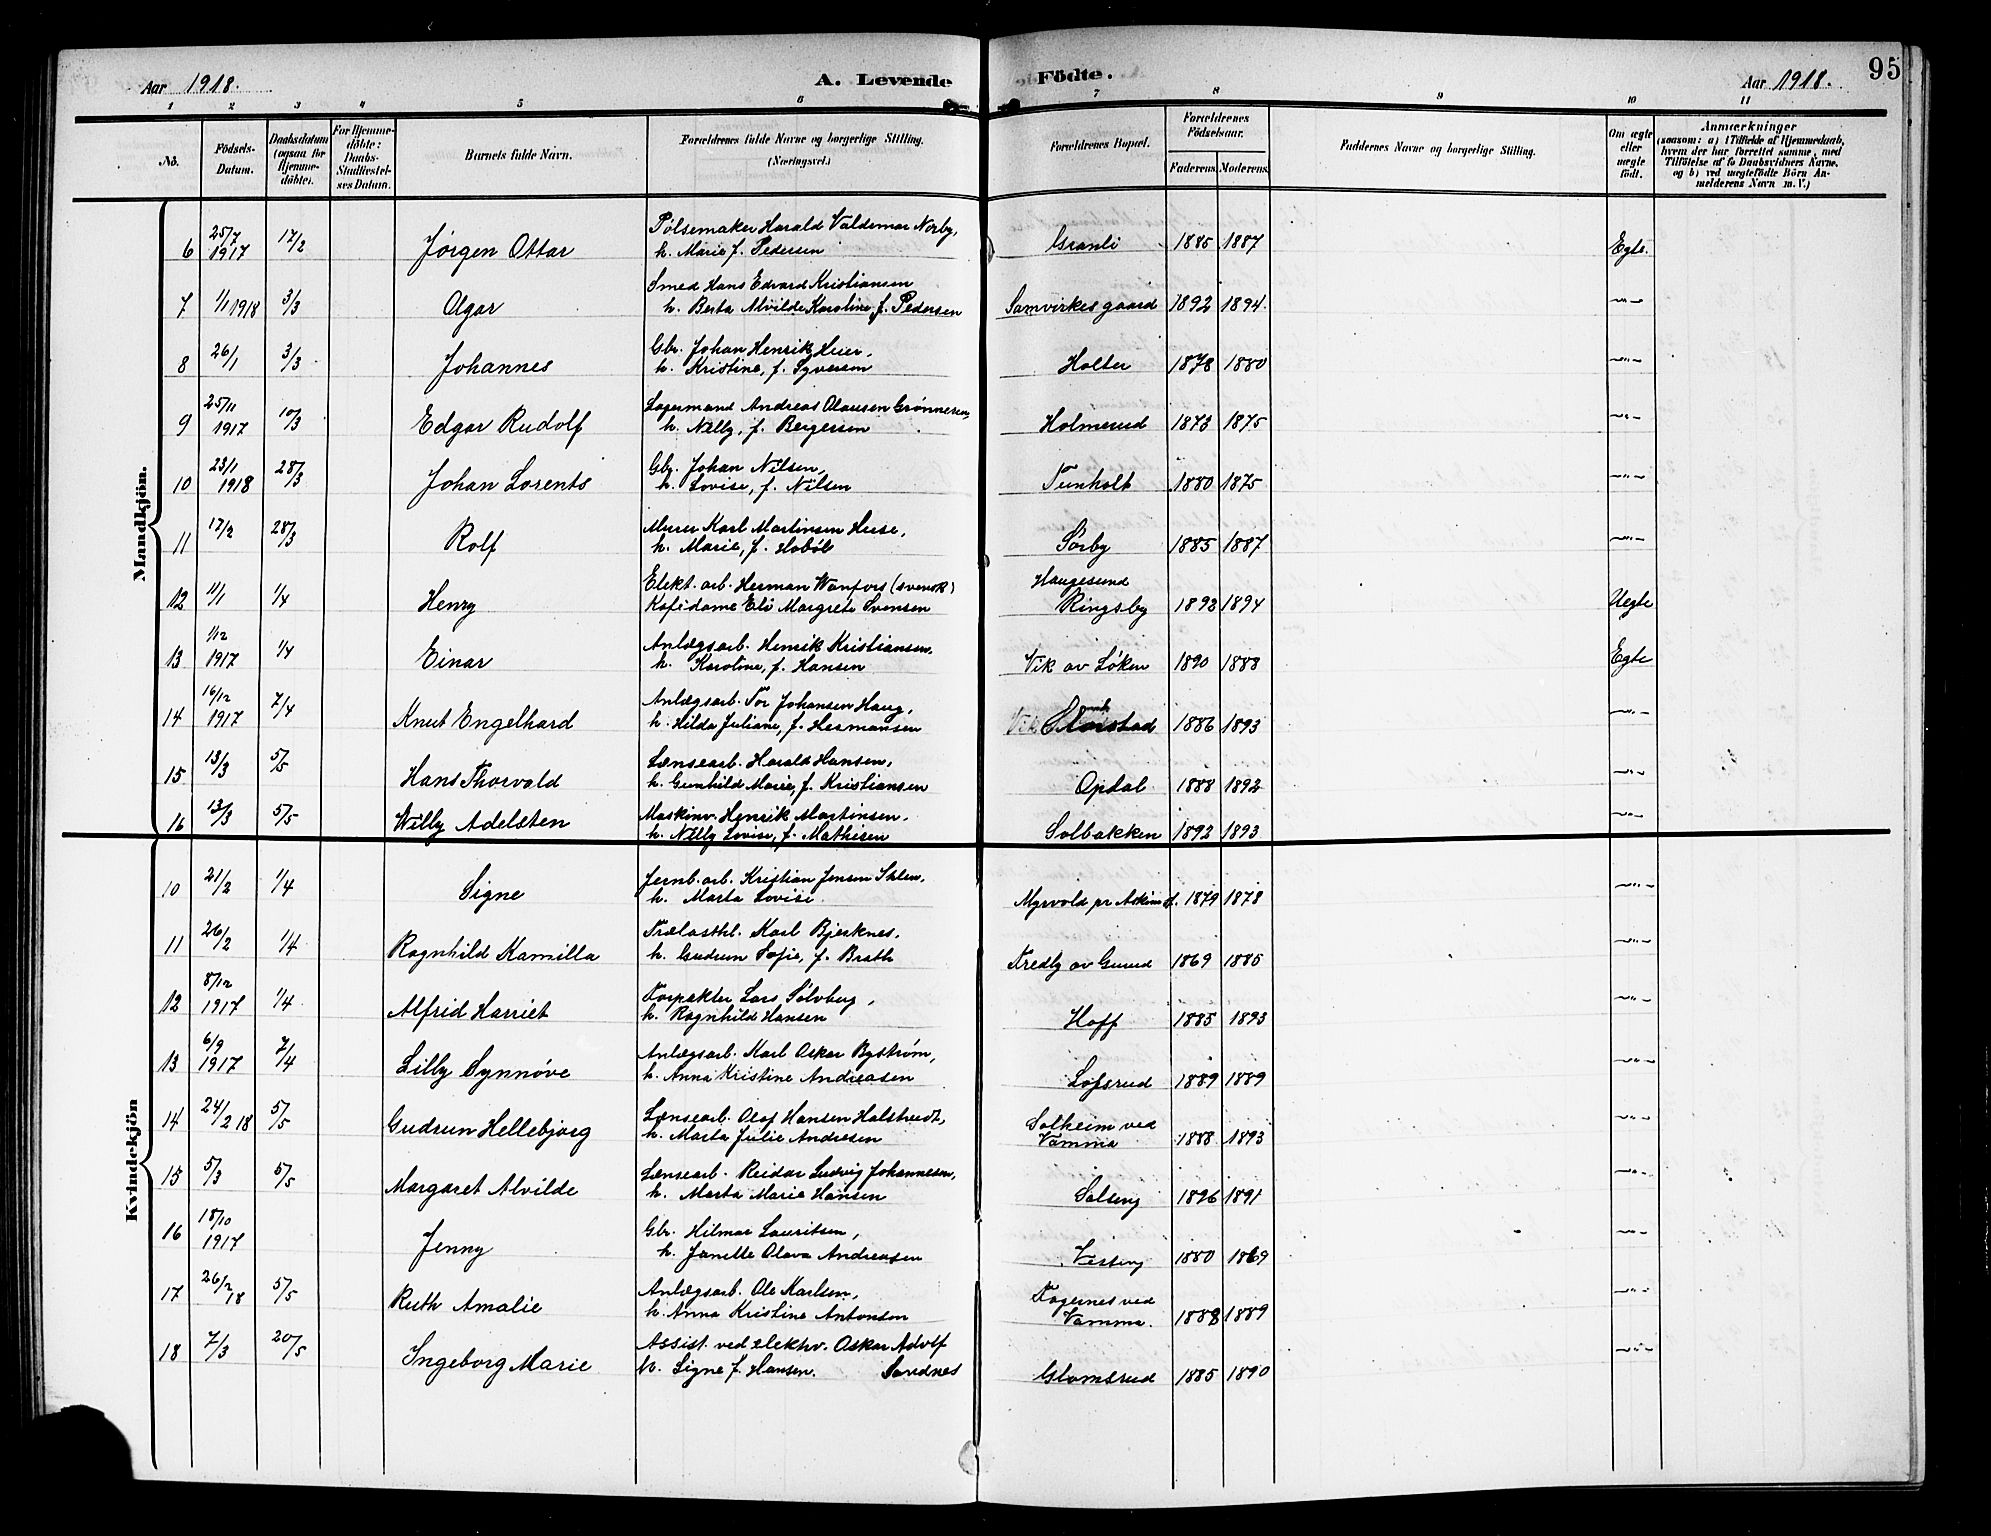 Aar 1918.
A. Levende Födte.
Aar 1918.
95
1 2 3 4 5 6 7 8 9 10 11
No.
Födsels-Datum.
Daabsdatum (ogsaa for Hjemme-döbte).
For Hjemme-döbte: Daabs-Stadfæstel-ses Datum.
Barnets fulde Navn.
Forældrenes fulde Navne og borgerlige Stilling. (Næringsvei.)
Forældrenes Bopæl.
Forældrenes Födselsaar.
Faderens. Moderens.
Faddernes Navne og borgerlige Stilling.
Om ægte eller uægte födt.
Anmærkninger (saasom: a) i Tilfælde af Hjemmedaab, hvem der har forrettet samme, med Tilföielse af to Daabsvidners Navne, og b) ved uægtefödte Börn Anmelderens Navn m. V.)
Mandkjön.
6 25/7 1917 17/2 Jørgen Ottar Pølsemaker Harald Valdemar Norby, h. Marie f. Pedersen Granli 1885 1887 Egte.
7 1/1 1918 3/3 Agar Smed Hans Edvard Kristiansen h. Berta Alvilde Karoline, f. Pedersen Samvirkesgaard 1892 1894. —"—
8 26/1 3/3 Johannes Gbr. Johan Henrik Heier, h. Kristine, f. Syversen Holter 1878 1880 —"—
9 25/11 1917 10/3 Edgar Rudolf Lagermand Andreas Olausen Grønnersen, h. Nelly, f. Bergersen Holmerud 1873 1875 —"—
10 23/1 1918 28/3 Johan Lorents Gbr. Johan Nilsen, h. Lovise, f. Nilsen Tunholt 1880 1875 —"—
11 17/2 28/3 Rolf Murer Karl Martinsen Huse, h. Marie, f. Hobøl Sørby 1885 1887 —"—
12 11/1 1/4 Henry Elekt. arb. Herman Wanfors (svensk) Kafédame Eli Margrete Svensen Haugesund Ringsby 1892 1894 Uegte
13 1/12 1917 1/4 Einar Anlægsarb. Henrik Kristiansen, h. Karoline, f. Hansen Vik av Løken 1890 1888 Egte
14 16/12 1917 7/4 Knut Engelhard Anlægsarb. Tor Johansen Haug, h. Hilda Juliane, f. Hermansen 1886 1893 —"—
15 13/3 5/5 Hans Thorvald Lænsearb. Harald Hansen, h. Gunhild Marie, f. Kristiansen Opdal 1888 1892 —"—
16 13/3 5/5 Willy Adelsten Maskinv. Henrik Martinsen, h. Nelly Lovise, f. Mathisen Solbakken 1892 1893 —"—
Kvindekjön
10 21/2 1/4 Signe Jernb. arb. Kristian Jensen h. Marta Lovise Myrvold pr Askim st. 1879 1878 —"—
11 26/2 1/4 Ragnhild Kamilla Trælasthl. Karl Bjerknes, h. Gudrun Sofie, f. Brath Fredly av Gurud 1869 1885 —"—
12 8/12 1917 1/4 Alfrid Harriet Forpakter Lars Sølvberg, h. Ragnhild Hansen Hoff 1885 1893 —"—
13 6/9 1917 7/4 Lilly Synnøve Anlægsarb. Karl Oskar Bystrøm, h. Anna Kristine Andreasen Løfsrud 1889 1889 —"—
14 24/2 18 5/5 Gudrun Hellebjørg Lænsearb. Olaf Hansen Halstvedt, h. Marta Julie Andresen Solheim ved Vamma 1888 1893 —"—
15 5/3 5/5 Margaret Alvilde Lænsearb. Reidar Ludvig Johannesen, h. Marta Marie Hansen Soleng 1896 1891 —"—
16 18/10 1917 Jenny Gbr. Hilmar Lauritsen, h. Janette Olava Andreasen Vesteng 1880 1869 —"—
17 26/2 18 5/5 Ruth Amalie Anlægsarb. Ole Karlsen, h. Anna Kristine Antonsen Fagernes ved Vamma. 1888 1889 —"—
18 7/3 20/5 Ingeborg Marie Assist. ved elektv. Oskar Adolf Sandnes h. Signe f. Hansen. Glomsrud 1885 1890 —"—